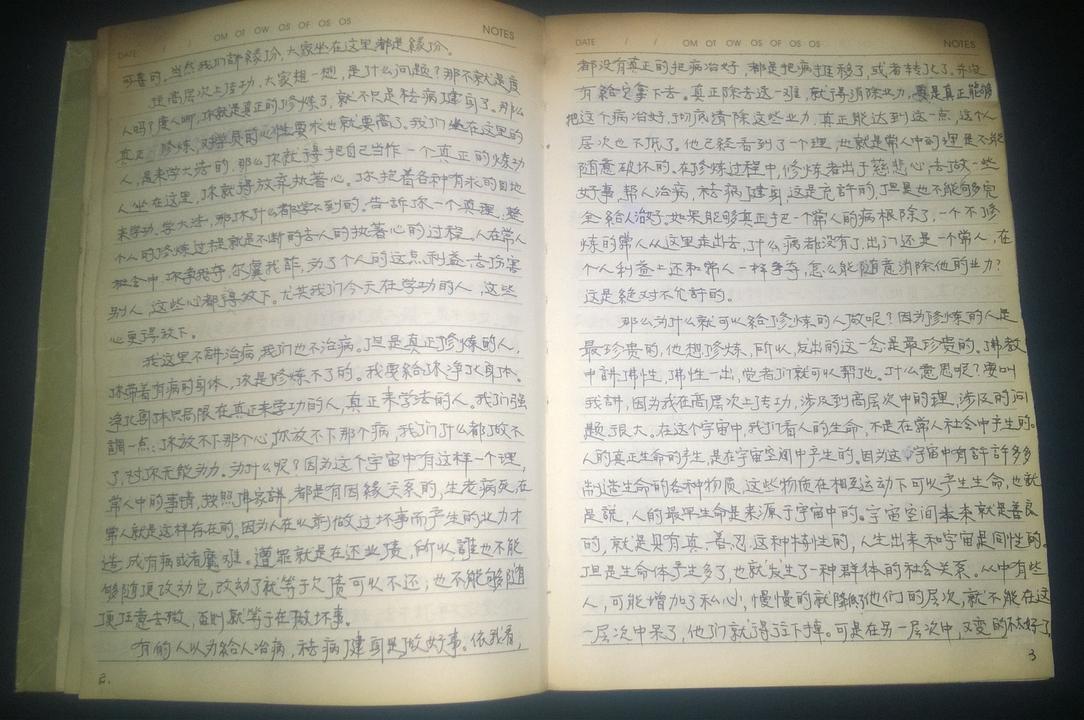 DATE / / OM OT OW OS OF OS OS NOTES
可喜的。当然我们讲緣份,大家坐在这里都是緣份。
往高层次上传功,大家想一想,是什么问题?那不就是度
人吗?度人啊,你就是真正的修炼了,就不只是祛病健身了。那么
真正修炼,对学员的心性要求也就要高了。我们坐在这里的
人,是来学大法的,那么你就得把自己当作一个真正的炼功
人坐在这里,你就得放弃执著心。你抱着各种有求的目地
来学功,学大法,那你什么都学不到的。告诉你一个真理:整
个人的修炼过程就是不断的去人的执著心的过程。人在常人
社会中,你争我夺,尔虞我詐,为了个人的这点利益,去伤害
别人,这些心都得放下。尤其我们今天在学功的人,这些
心更得放下。
我这里不讲治病,我们也不治病。但是真正修炼的人,
你带着有病的身体,你是修炼不了的。我要給你净化身体。
净化身体只局限在真正来学功的人,真正来学法的人。我们强
調一点:你放不下那个心,你放不下那个病,我们什么都做不
了,对你无能为力。为什么呢?因为这个宇宙中有这样一个理:
常人中的事情,按照佛家讲,都是有因緣关系的,生老病死,在
常人就是这样存在的。因为人在以前做过坏事而产生的业力才
造成有病或者魔难。遭罪就是在还业债,所以,誰也不能
够随便改动它,改动了就等于欠债可以不还,也不能够随
便任意去做,否则就等于在做坏事。
有的人以为給人治病,祛病健身是做好事。依我看,
2.
DATE / / OM OT OW OS OF OS OS NOTES
都没有真正的把病治好,都是把病推移了,或者转化了,并没
有給它拿下去。真正除去这一难,就得消除业力,要是真正能够
把这个病治好,彻底清除这些业力,真正能达到这一点,这个人
层次也不低了。他已经看到了一个理,也就是常人中的理是不能
随意破坏的。在修炼过程中,修炼者出于慈悲心,去做一些
好事,帮人治病,祛病健身,这是允許的,但是也不能够多完
全給人治好。如果能够真正把一个常人的病根除了,一个不修
炼的常人从这里走出去,什么病都没有了,出门还是一个常人,在
个人利益上还和常人一样争夺,怎么能随意消除他的业力?
这是絕对不允許的。
那么为什么就可以給修炼的人做呢?因为修炼的人是
最珍贵的,他想修炼,所以,发出的这一念是最珍贵的。佛教
中讲佛性,佛性一出,觉者们就可以帮他。什么意思呢?要叫
我讲,因为我在高层次上传功,涉及到高层次中的理,涉及的问
题很大。在这个宇宙中,我们看人的生命,不是在常人社会中产生的。
人的真正生命的产生,是在宇宙空间中产生的。因为这个宇宙中有許許多多
制造生命的各种物质,这些物质在相互运动下可以产生生命,也就
是說,人的最早生命是来源于宇宙中的。宇宙空间本来就是善良
的,就是具有真、善、忍这种特性的,人生出来和宇宙是同性的。
但是生命体产生多了,也就发生了一种群体的社会关系。从中有些
人,可能增加了私心,慢慢的就降低了他们的层次,就不能在这
一层次中呆了,他们就得往下掉。可是在另一层次中,又变的不太好了,
3